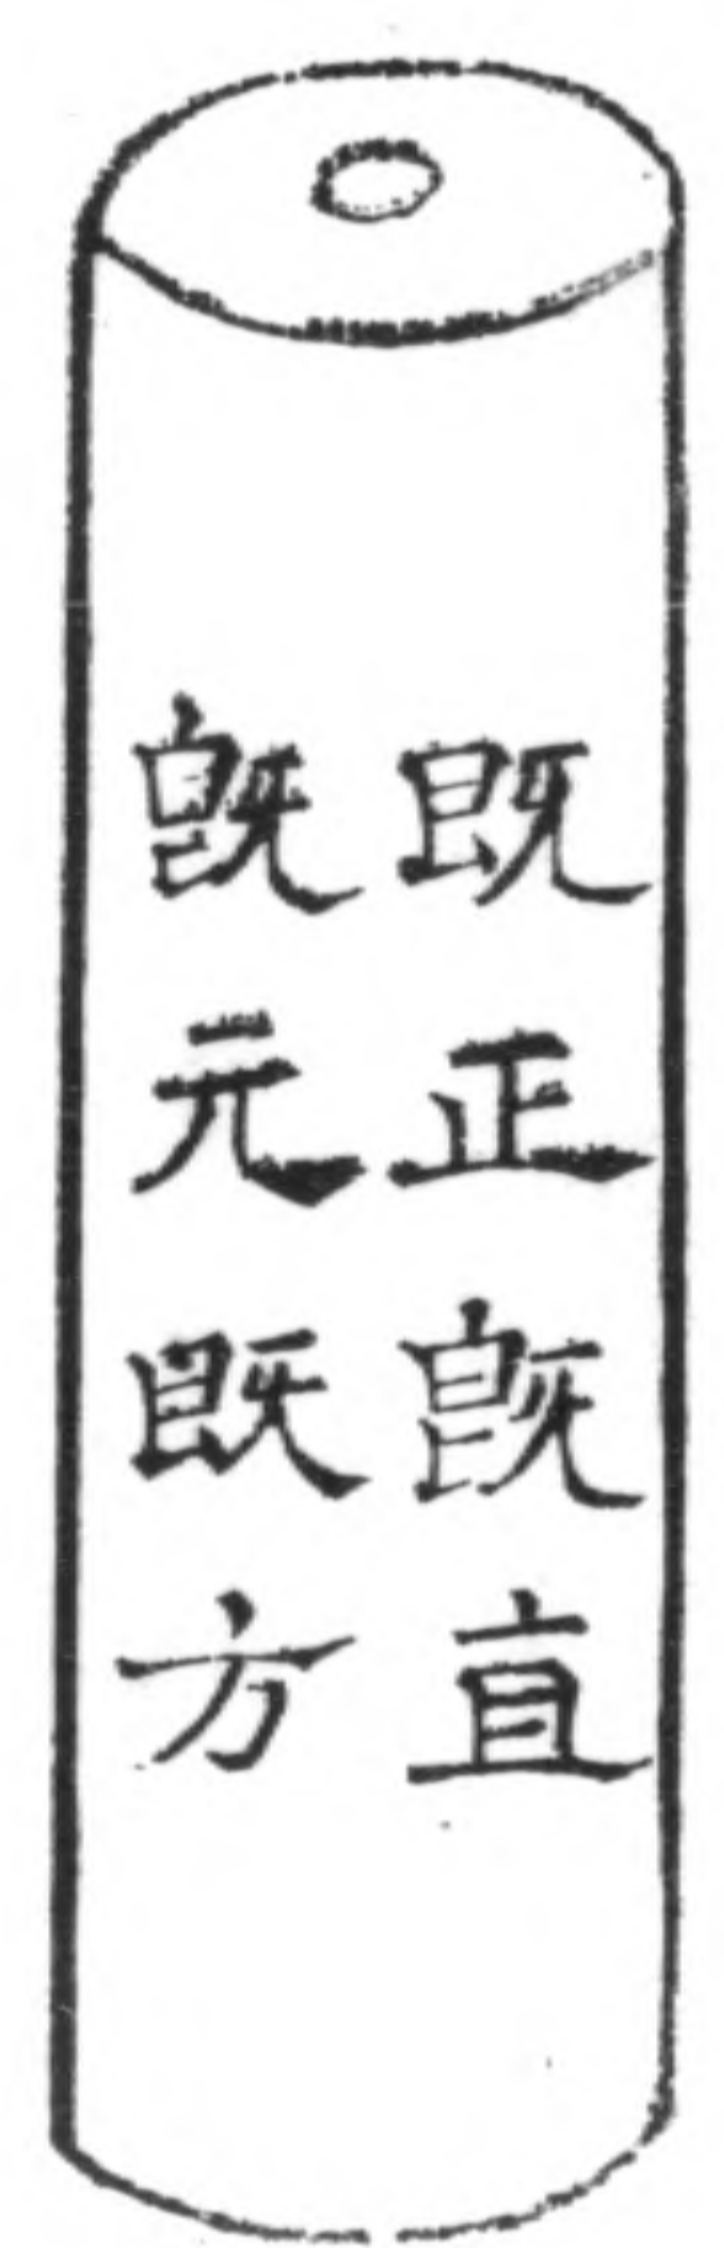 既正既直
既元既方